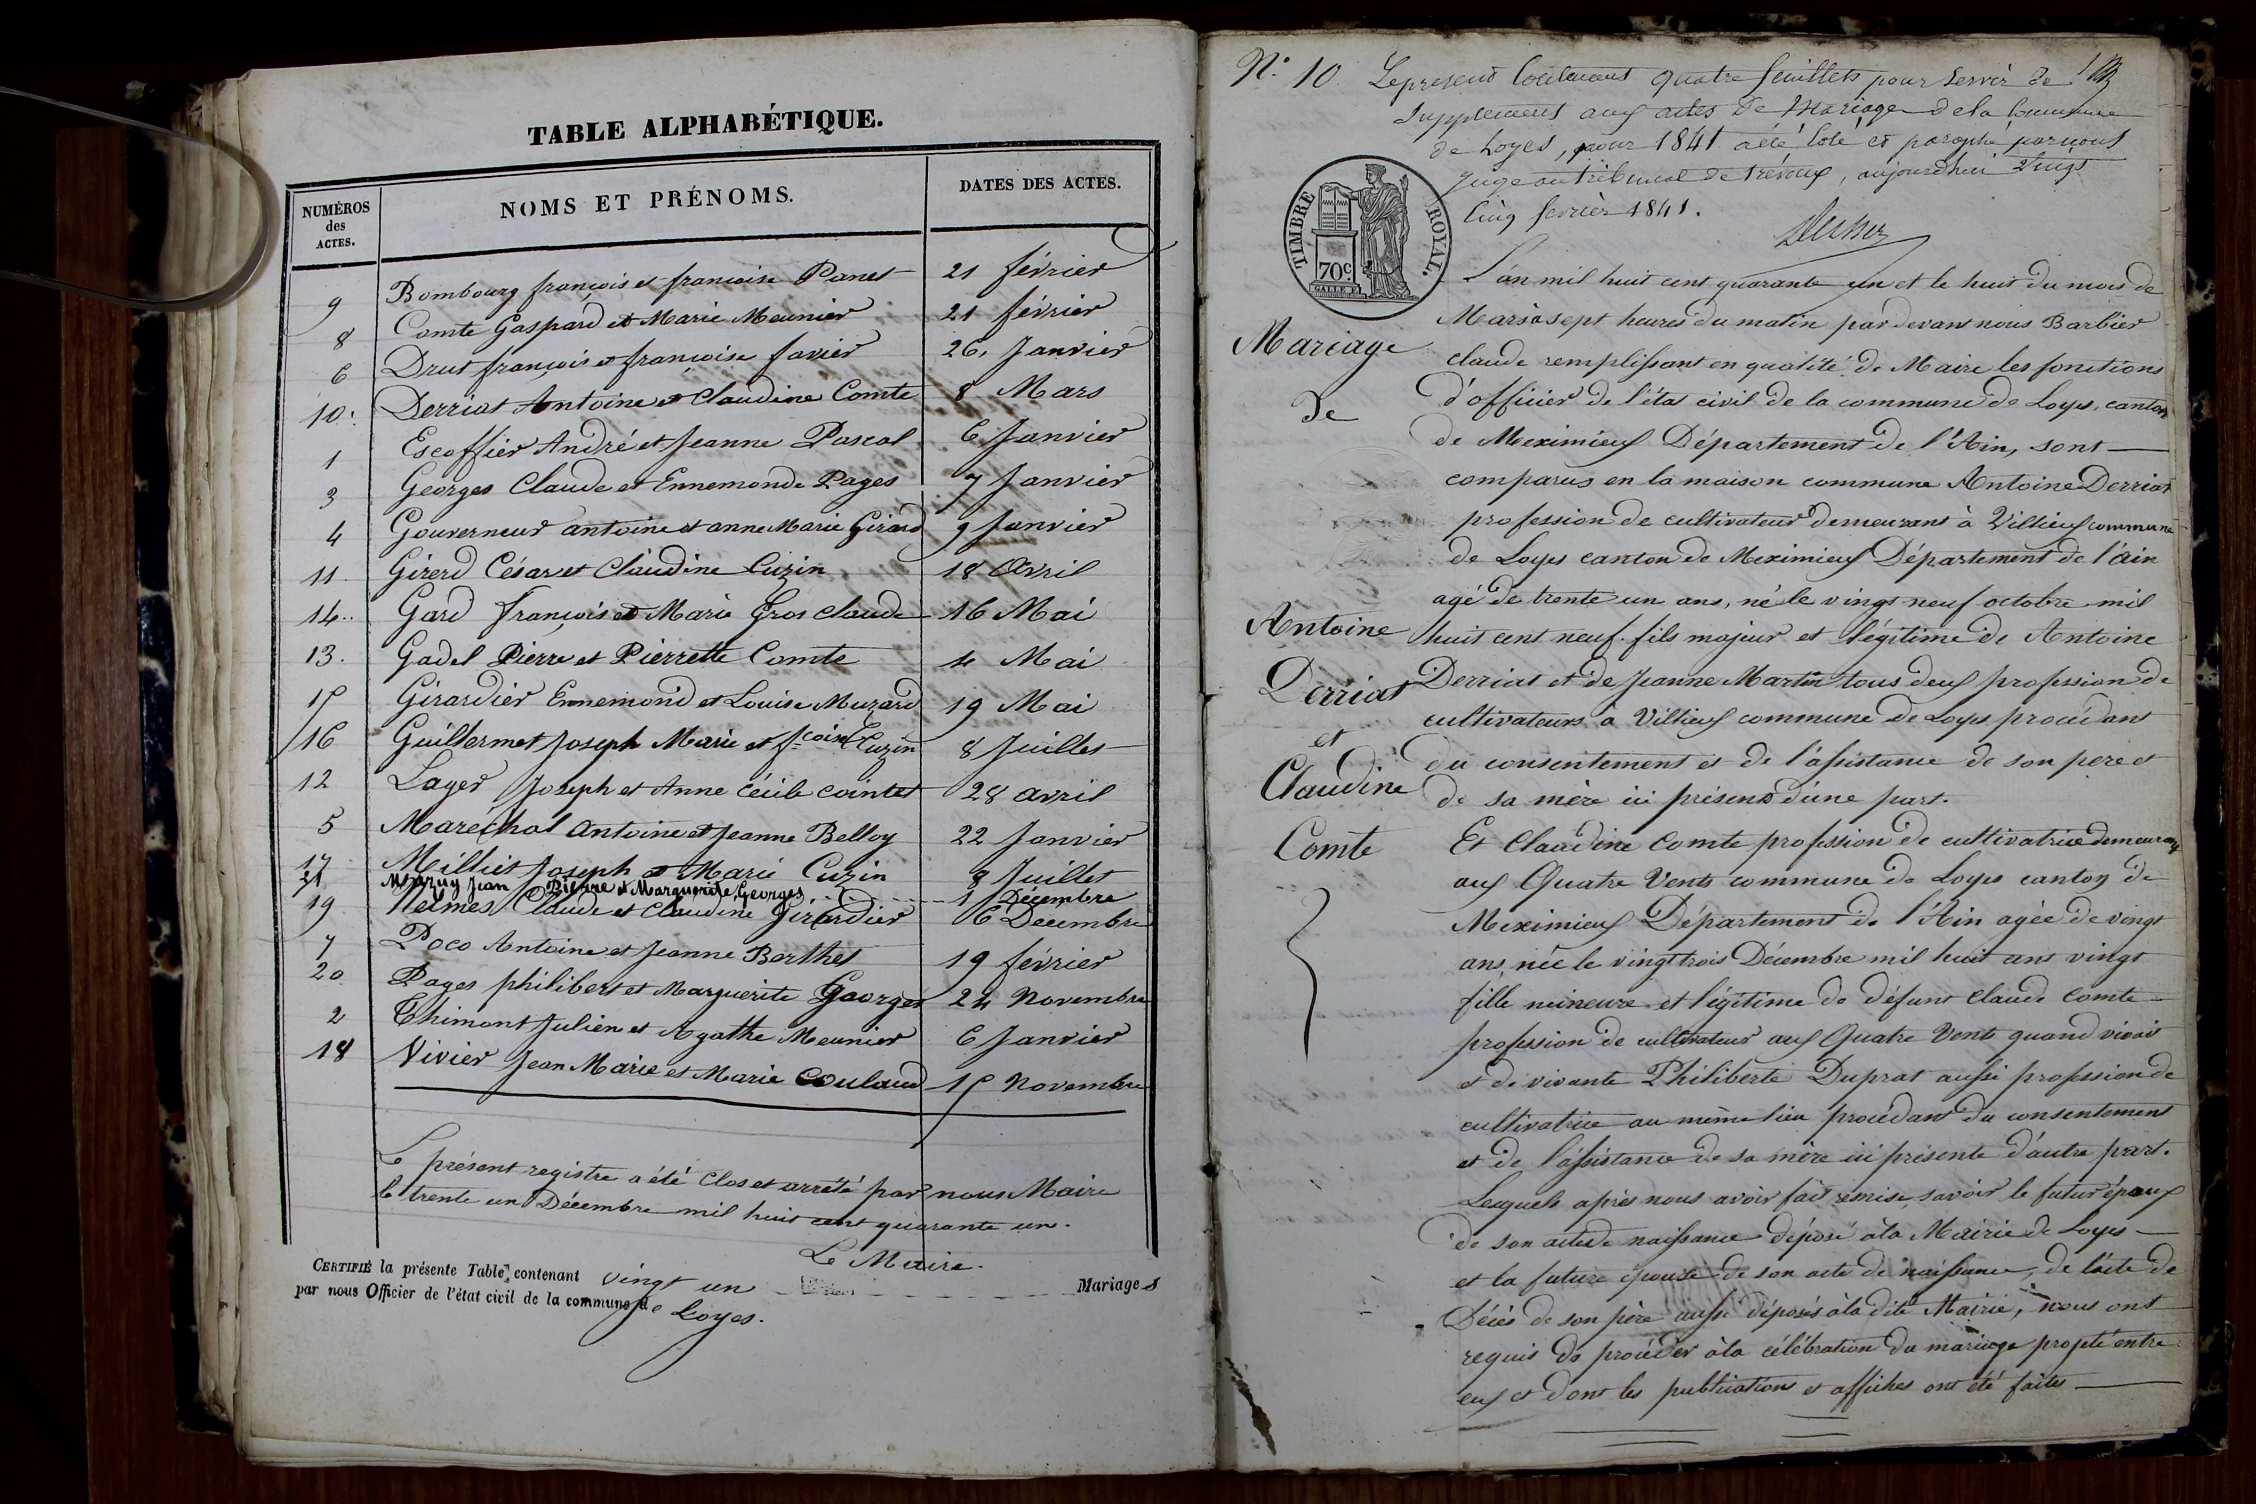 TABLE ALPHABÉTIQUE.
NUMÉROS des ACTES.
NOMS ET PRÉNOMS.
DATES DES ACTES.
9 Bombourg françois et françoise Panet 21 février
8 Comte Gaspard et Marie Meunier 21 février
6 Drut françois et françoise favier 26 Janvier
10. Derriat Antoine et Claudine Comte 8 Mars
1 Escoffier André et Jeanne Pascal 6 Janvier
3 Georges Claude et Ennemonde Pages 7 Janvier
4 Gouverneur antoine et anne Marie Girard 9 Janvier
11 Girerd César et Claudine Cuzin 18 Avril
14.. Gard François et Marie Gros claude 16 Mai
13. Gadel Pierre et Pierrette Comte 4 Mai
15 Girardier Ennemond et Louise Muzard 19 Mai
16 Guillermet Joseph Marie et fçoise Cuzin 8 Juillet
12 Layer Joseph et Anne Cécile cointet 28 avril
5 Maréchal Antoine et Jeanne Belloy 22 Janvier
17 Milliet Joseph et Marie Cuzin 8 Juillet
21 Jean Pierre et Marguerite Georges 1 Décembre
19 Nelmes Claude et Claudine Girardier 6 Decembre
7 Poco Antoine et Jeanne Berthet 19 février
20 Pages philibert et Marguerite Georges 24 Novembre
2 Thimont Julien et Agathe Meunier 6 Janvier
18 Vivier Jean Marie et Marie Coulaud 15 Novembre
Le présent registre a été clos et arrêté par nous Maire
le trente un Décembre mil huit cent quarante un.
Le Maire.
CERTIFIÉ la présente Table, contenant vingt un Mariages
par nous Officier de l'état civil de la commune de Loyes.
N° 10 Le present Contenant quatre feuillets pour servir de
Supplement aux actes de Mariage de la Commune
de Loyes, pour 1841 a été Coté et paraphé par nous
Juge au tribunal de Trévoux, aujourd'hui Vingt
Cinq fevrier 1841.
TIMBRE ROYAL.
70c.
L'an mil huit cent quarante un et le huit du mois de
Mars à sept heures du matin par devant nous Barbier
claude remplissant en qualité de Maire les fonctions
d'officier de l'état civil de la commune de Loyes, canton
de Meximieux Département de l'Ain, sont
comparus en la maison commune Antoine Derriat
profession de cultivateur demeurant à Villieux commune
de Loyes canton de Meximieux Département de l'ain
agé de trente un ans, né le vingt neuf octobre mil
huit cent neuf. fils majeur et légitime de Antoine
Derriat et de Jeanne Martin tous deux profession de
cultivateurs à Villieux commune de Loyes procédant
du consentement et de l'assistance de son pere et
de sa mère ici présens d'une part.
Et Claudine Comte profession de cultivatrice demeurant
aux Quatre Vents commune de Loyes canton de
Meximieux Département de l'Ain agée de vingt
ans, née le vingt trois Décembre mil huit cent vingt
fille mineure et légitime de défunt claude comte
profession de cultivateur aux Quatre Vents quand vivait
et de vivante Philiberte Duprat aussi profession de
cultivatrice au même lieu procédant du consentement
et de l'assistance de sa mère ici présente d'autre part.
Lesquels après nous avoir fait remise, savoir le futur époux
de son acte de naissance déposé à la Mairie de Loyes
et la future épouse de son acte de naissance, de l'acte de
Décès de son père aussi déposés à la dite Mairie, nous ont
requis de procéder à la célébration du mariage projeté entre
eux et dont les publications et affiches ont été faites
Mariage
De
Antoine
Derriat
et
Claudine
Comte